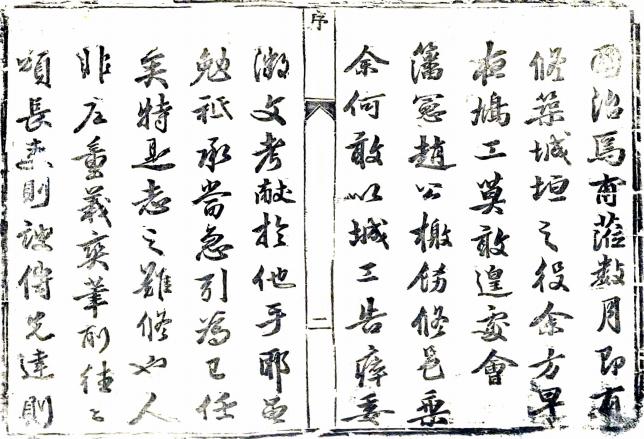 國治焉甫蒞數月即有
修築城垣之役余方早
夜鳩工莫敢遑處會
藩憲趙公檄飭修邑乘
余何敢以城工告瘁委
序
二
徵文考獻於他手耶黽
勉祗承當急引為己任
矣特是志之難修也人
非左董義爽筆削往往
頌長吏則諛傳先達則